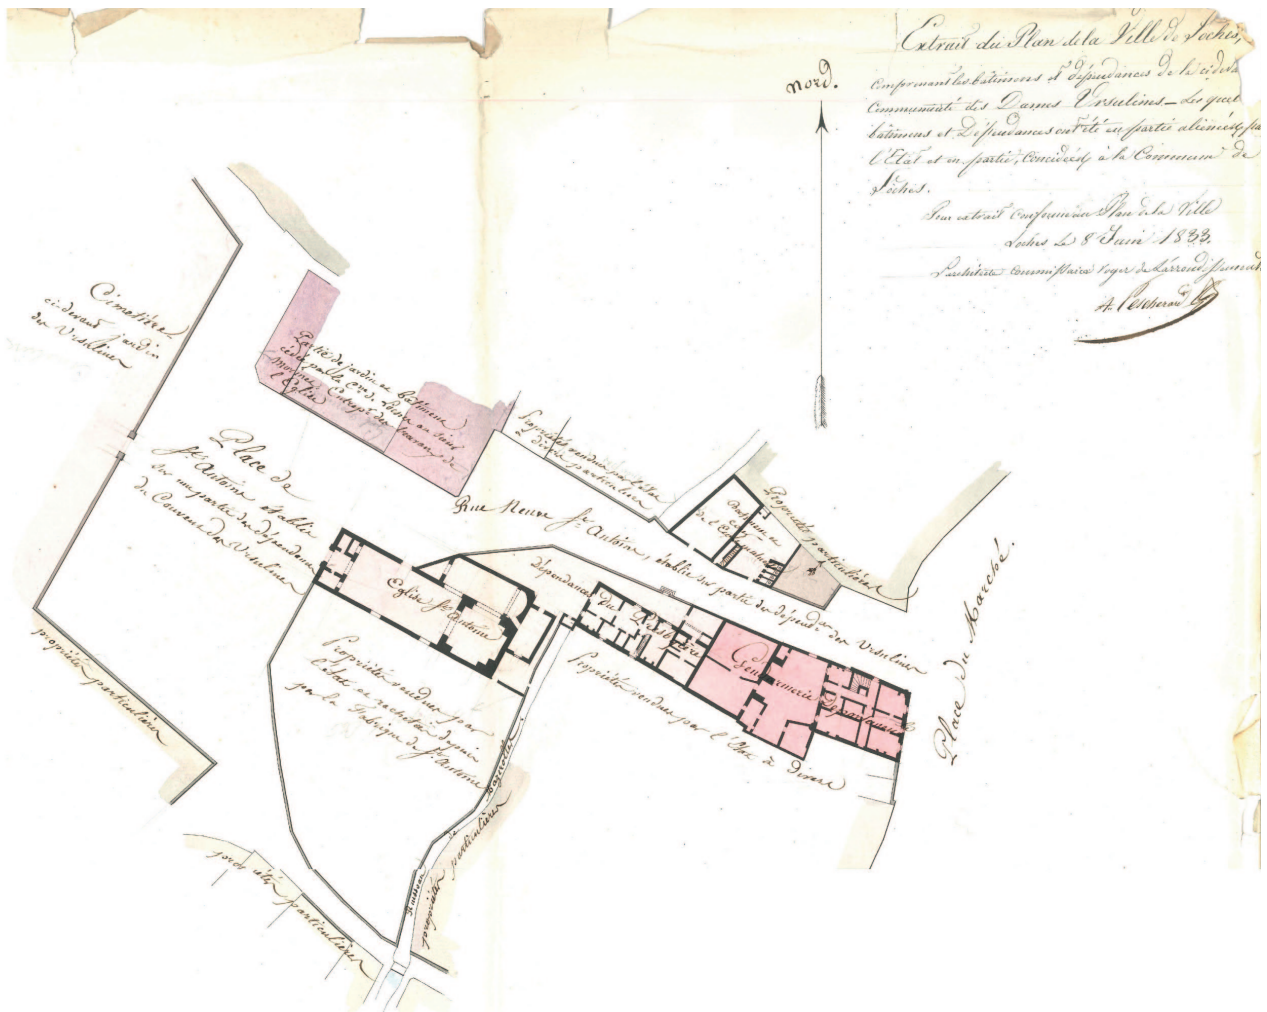 Extrait du Plan de la Ville de Loches,
comprenant les bâtimens et dépendances de la ci devt
Communauté des Dames Ursulines _ Les quels
bâtimens et Dépendances ont été en partie aliénés, par
l'Etat et en partie, concédés à la Commune de
Loches.
Pour extrait conforme au Plan de la Ville
Loches le 8 Juin 1833.
L'architecte commissaire Voyer de l'arrondissement
A. Pescherard
Nord.
Cimetière
ci-devant jardin
des Ursulines
Partie de jardin et bâtiment
cédée par la au Sieur
Entrepr. des travaux de
l'Eglise
Place de
St. Antoine établie
sur une partie des dépendances
du Couvent des Ursulines
Propriétés vendues par l'Etat
à divers particuliers
Rue Neuve St. Antoine, établie sur partie des dépendces des Ursulines
Propriétés particulières
Eglise St. Antoine
dépendances du Presbitère
Gendarmerie Départementale
Place du Marché.
Propriétés vendues par
l'Etat et rachetées depuis
par la Fabrique de St. Antoine
Propriétés vendues par l'Etat à divers
propriétés particulières
Ruisseau de
propriétés particulières
propriétés particulières